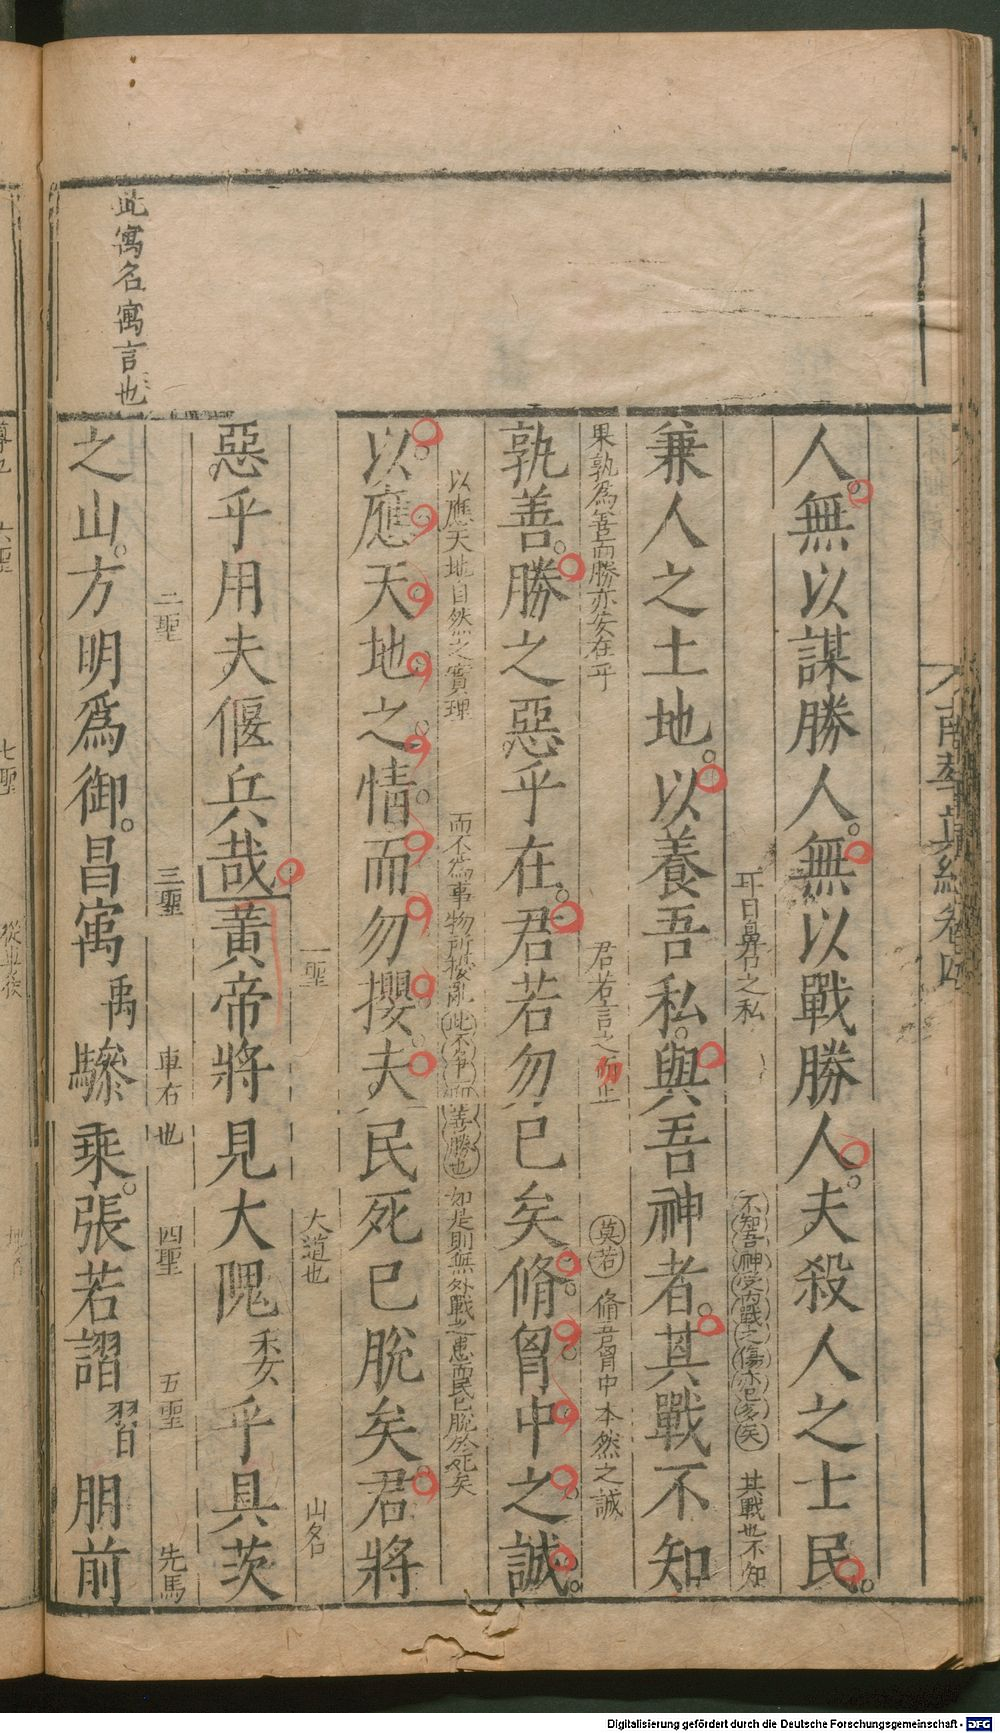 南華真經卷四
人無以謀勝人無以戰勝人夫殺人之士民
耳目鼻口之私 不知吾神受內戰之傷亦已多矣 其戰也不知
兼人之土地以養吾私與吾神者其戰不知
果孰為善而勝亦安在乎 君若言之而止 莫若 脩吾胷中本然之誠
孰善勝之惡乎在君若勿已矣脩胷中之誠
以應天地自然之實理 而不為事物所攖亂 此不爭而善勝也 如是則無外戰之患而民已脫於死矣
以應天地之情而勿攖夫民死已脫矣君將
一聖 大道也 山名
惡乎用夫偃兵哉黃帝將見大隗乎具茨
二聖 三聖 車右也 四聖 五聖 先馬
之山方明為御昌寓禹驂乘張若謵習朋前
此寓名寓言也
六聖 七聖 從車後
Digitalisierung gefördert durch die Deutsche Forschungsgemeinschaft - DFG